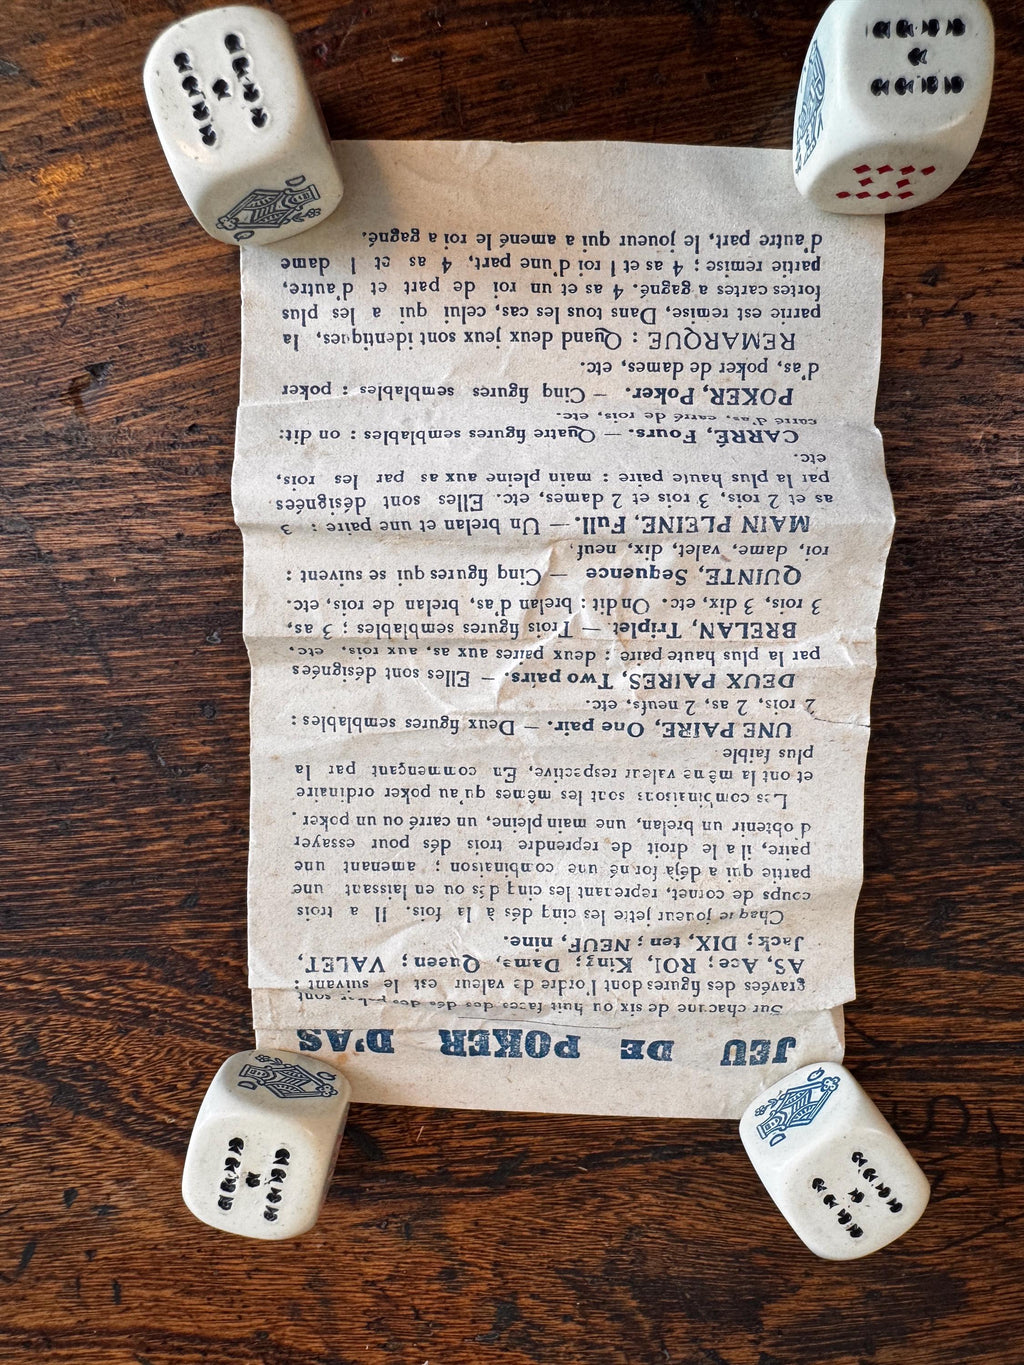 JEU DE POKER D'AS
Sur chacune de six ou huit faces des dés des poker sont
gravées des figures dont l'ordre de valeur est le suivant :
AS, Ace ; ROI, King ; Dame, Queen ; VALET,
Jack ; DIX, ten ; NEUF, nine.
Chaque joueur jette les cinq dés à la fois. Il a trois
coups de cornet, reprenant les cinq dés ou en laissant une
partie qui a déjà formé une combinaison ; amenant une
paire, il a le droit de reprendre trois dés pour essayer
d'obtenir un brelan, une main pleine, un carré ou un poker.
Les combinaisons sont les mêmes qu'au poker ordinaire
et ont la même valeur respective, En commençant par la
plus faible
UNE PAIRE, One pair. — Deux figures semblables :
2 rois, 2 as, 2 neufs, etc.
DEUX PAIRES, Two pairs. — Elles sont désignées
par la plus haute paire : deux paires aux as, aux rois, etc,
BRELAN, Triplet — Trois figures semblables ; 3 as,
3 rois, 3 dix, etc. On dit : brelan d'as, brelan de rois, etc.
QUINTE, Sequence — Cinq figures qui se suivent :
roi, dame, valet, dix, neuf,
MAIN PLEINE, Full. — Un brelan et une paire : 3
as et 2 rois, 3 rois et 2 dames, etc. Elles sont désignées
par la plus haute paire : main pleine aux as par les rois,
etc.
CARRÉ, Fours. — Quatre figures semblables : on dit:
carré d'as, carré de rois, etc.
POKER, Poker. — Cinq figures semblables : poker
d'as, poker de dames, etc.
REMARQUE : Quand deux jeux sont identiques, la
partie est remise, Dans tous les cas, celui qui a les plus
fortes cartes a gagné. 4 as et un roi de part et d'autre,
partie remise ; 4 as et 1 roi d'une part, 4 as et 1 dame
d'autre part, le joueur qui a amené le roi a gagné.